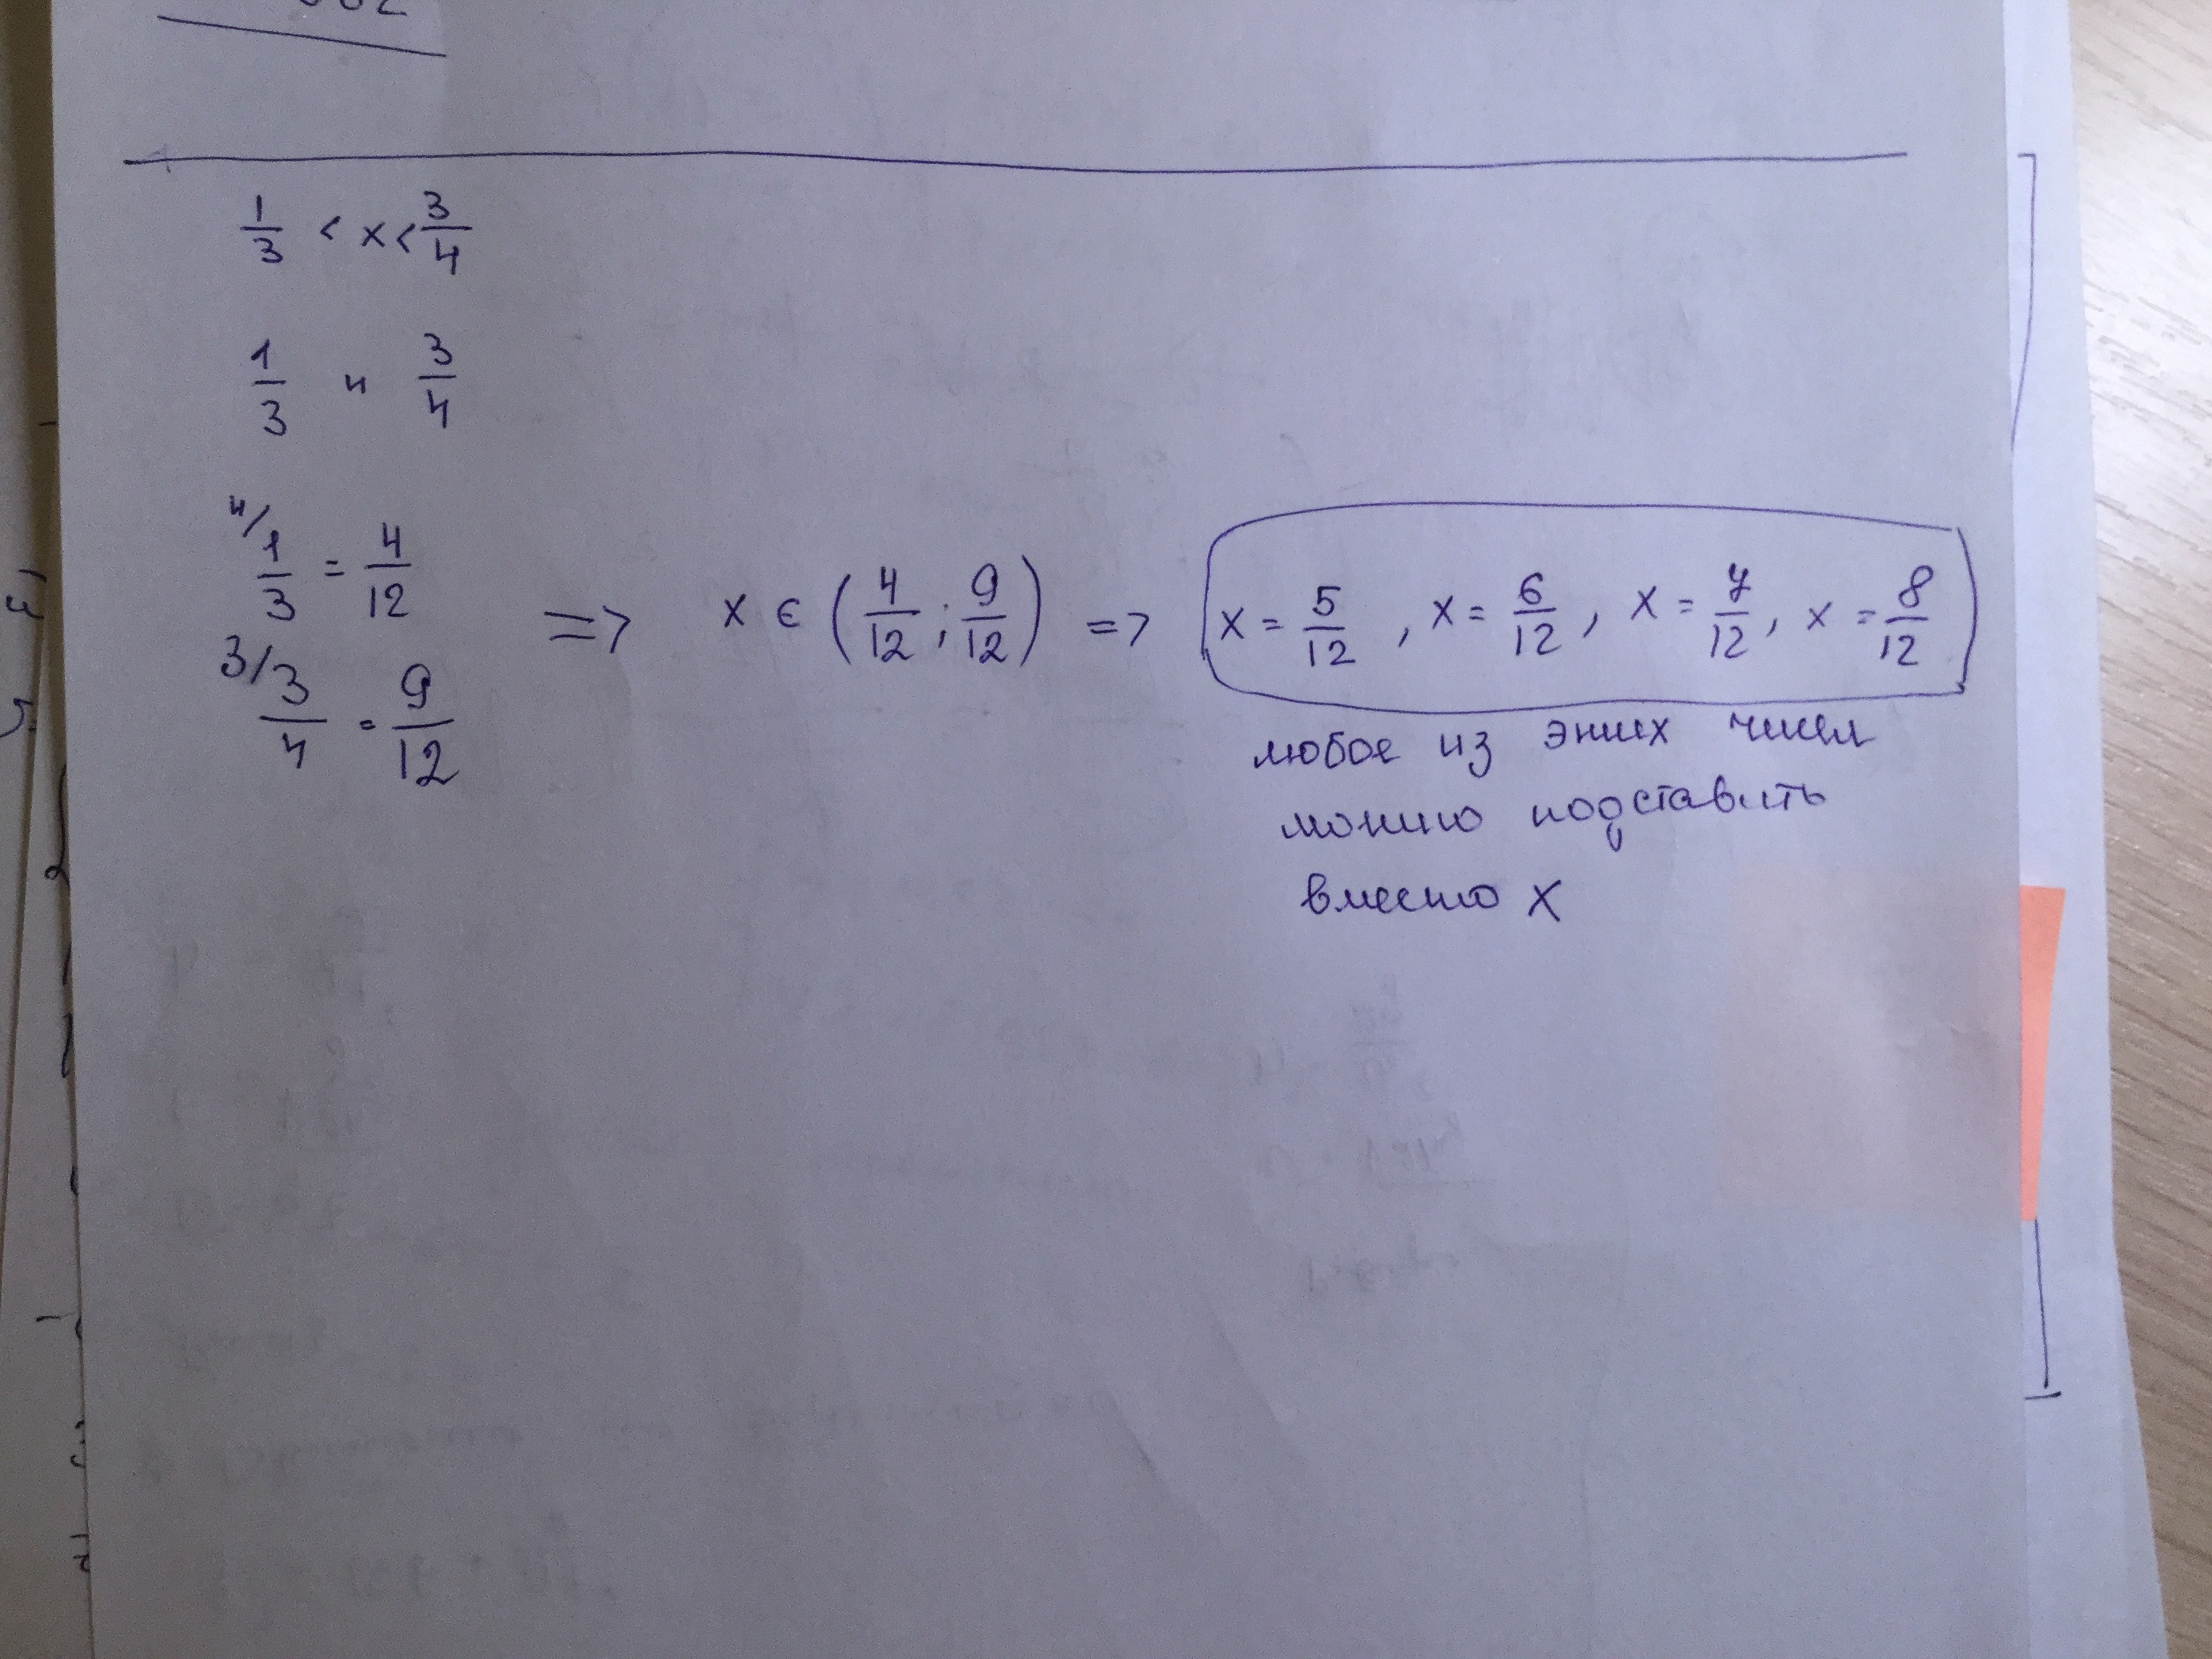 1/3 < x < 3/4
1/3 и 3/4
4/ 1/3 = 4/12
3/ 3/4 = 9/12
=> x ∈ (4/12 ; 9/12) => x = 5/12 , x = 6/12 , x = 7/12 , x = 8/12
любое из этих чисел
можно подставить
вместо x